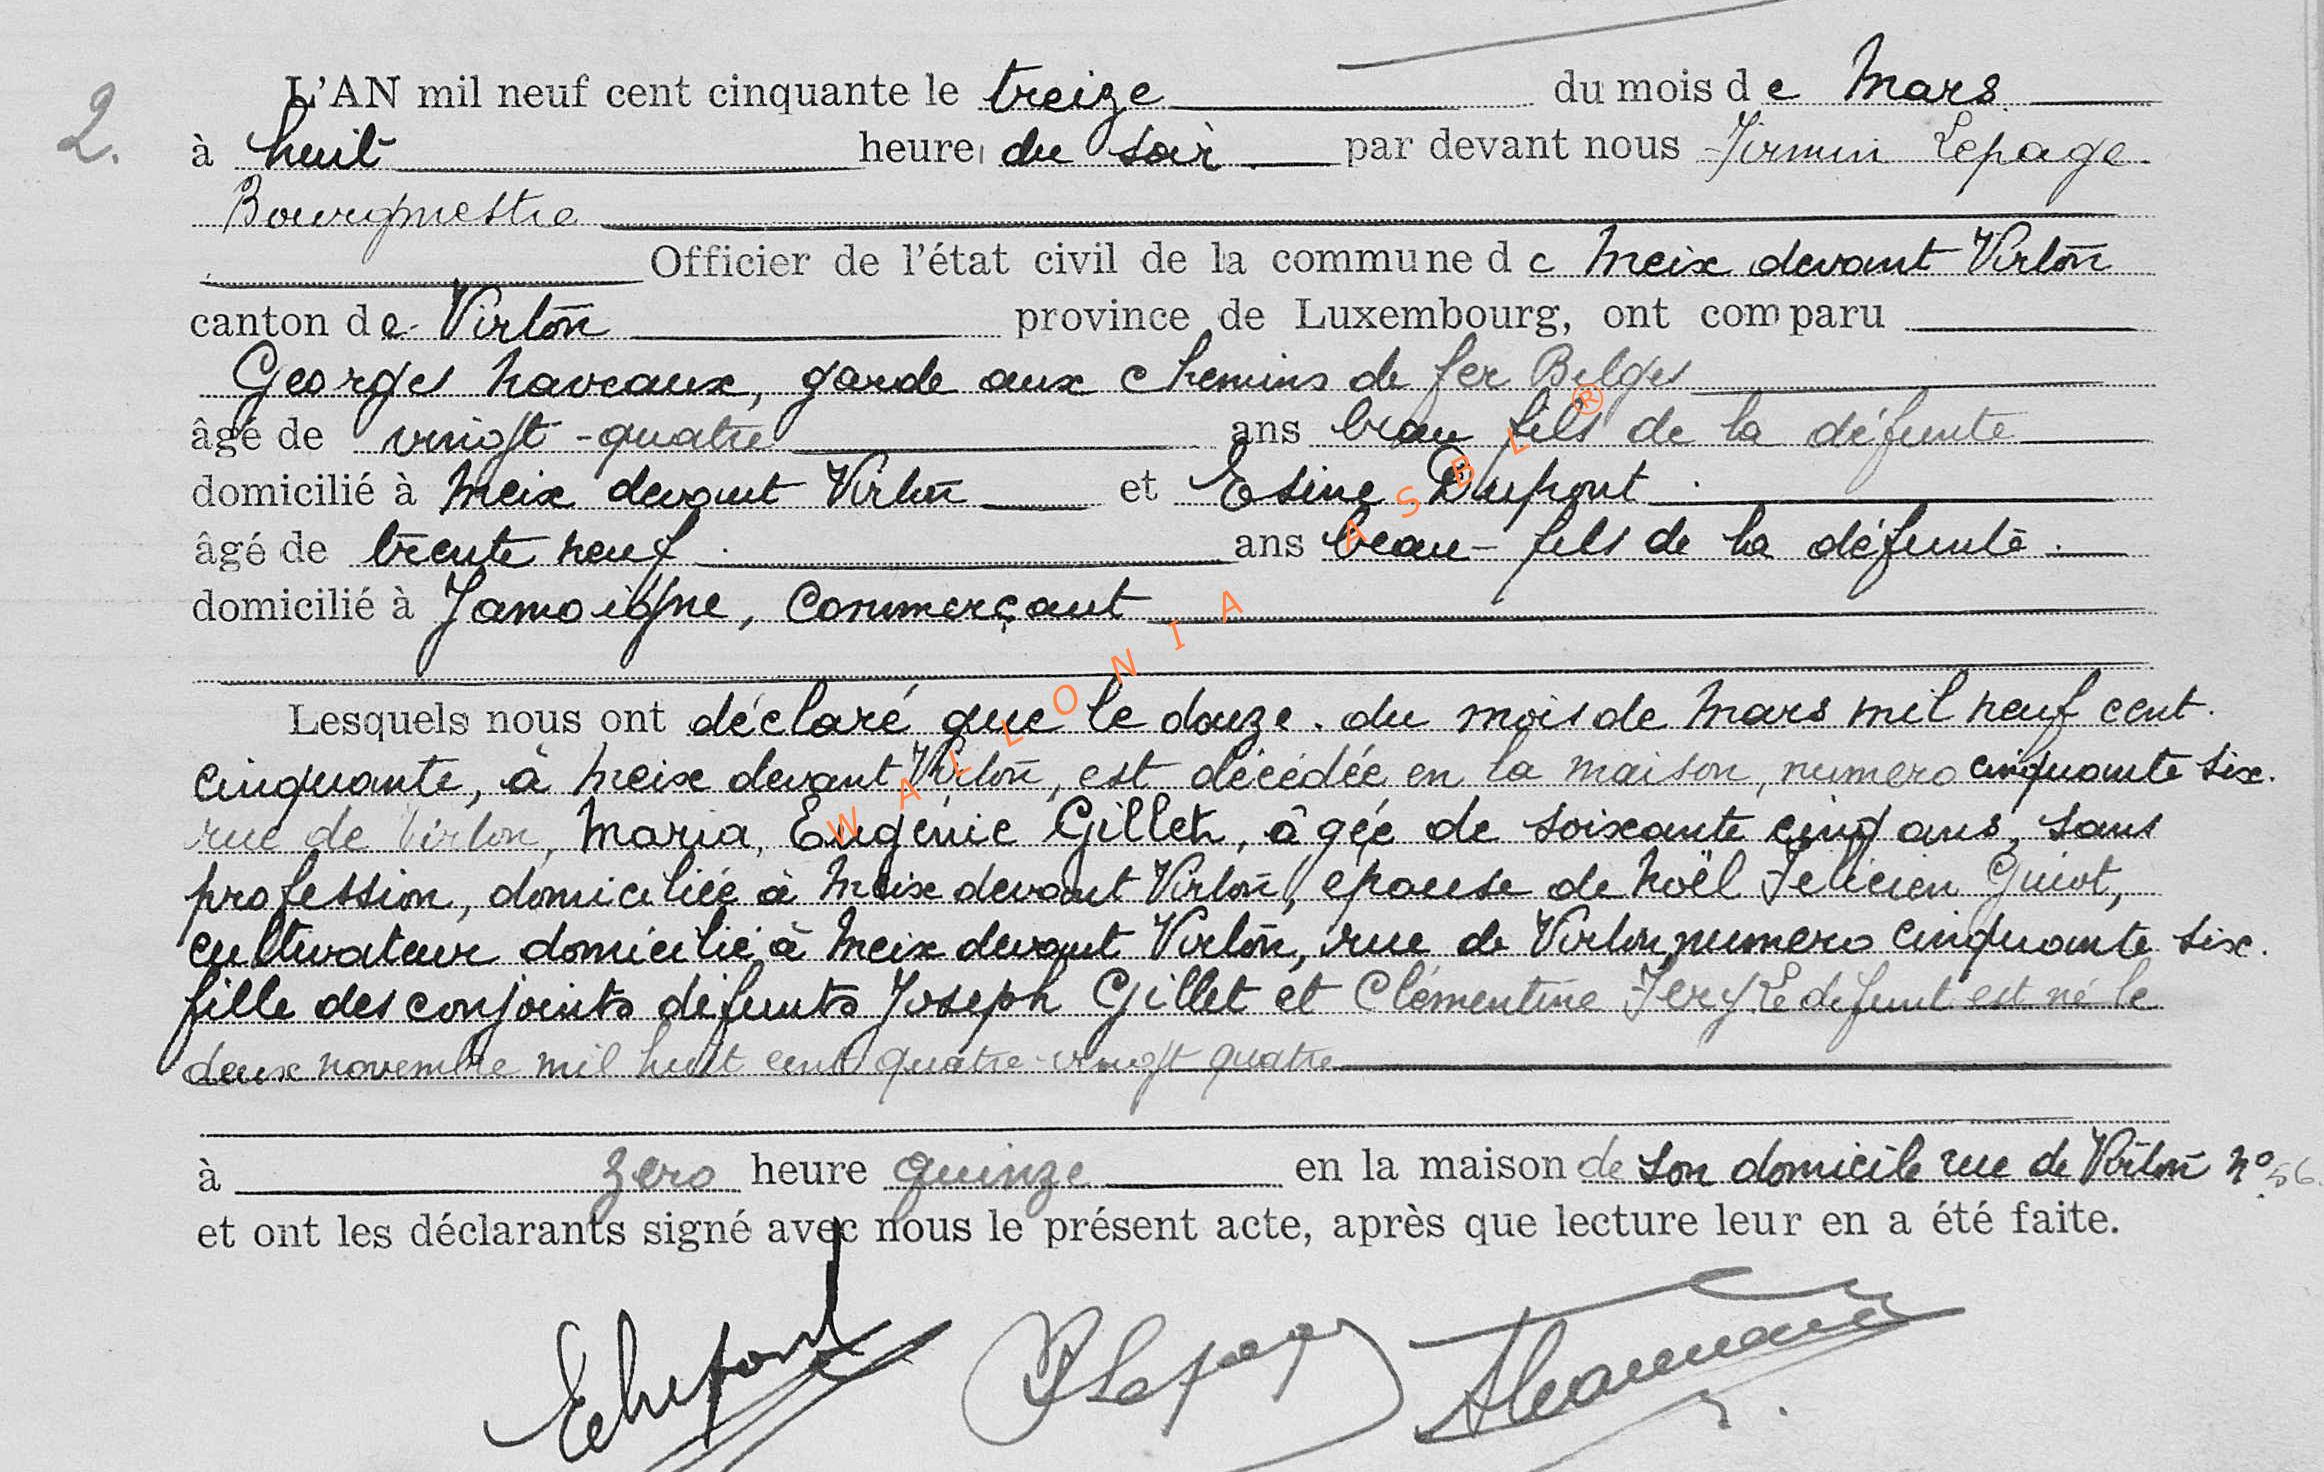 2.
L'AN mil neuf cent cinquante le treize du mois de Mars
à huit heure du soir par devant nous Firmin Lepage
Bourgmestre
Officier de l'état civil de la commune de Meix devant Virton
canton de Virton province de Luxembourg, ont comparu
Georges Naveaux, garde aux chemins de fer Belges
âgé de vingt-quatre ans beau fils de la défunte
domicilié à Meix devant Virton et Dupont
âgé de trente neuf ans beau-fils de la défunte.
domicilié à Jamoigne, Commerçant
Lesquels nous ont déclaré que le douze. du mois de Mars mil neuf cent.
cinquante, à Meix devant Virton, est décédée en la maison, numero cinquante six.
rue de Virton, Maria, Eugénie Gillet, âgée de soixante cinq ans, sans
profession, domiciliée à Meix devant Virton, épouse de Noël Félicien Guiot,
cultivateur domicilié à Meix devant Virton, rue de Virton, numero cinquante six.
fille des conjoints défunts Joseph Gillet et Clémentine Le défunt est né le
deux novembre mil huit cent quatre-vingt quatre
à zero heure quinze en la maison de son domicile rue de Virton no 56.
et ont les déclarants signé avec nous le présent acte, après que lecture leur en a été faite.
EDupont FLepage
WALLONIA ASBL ®